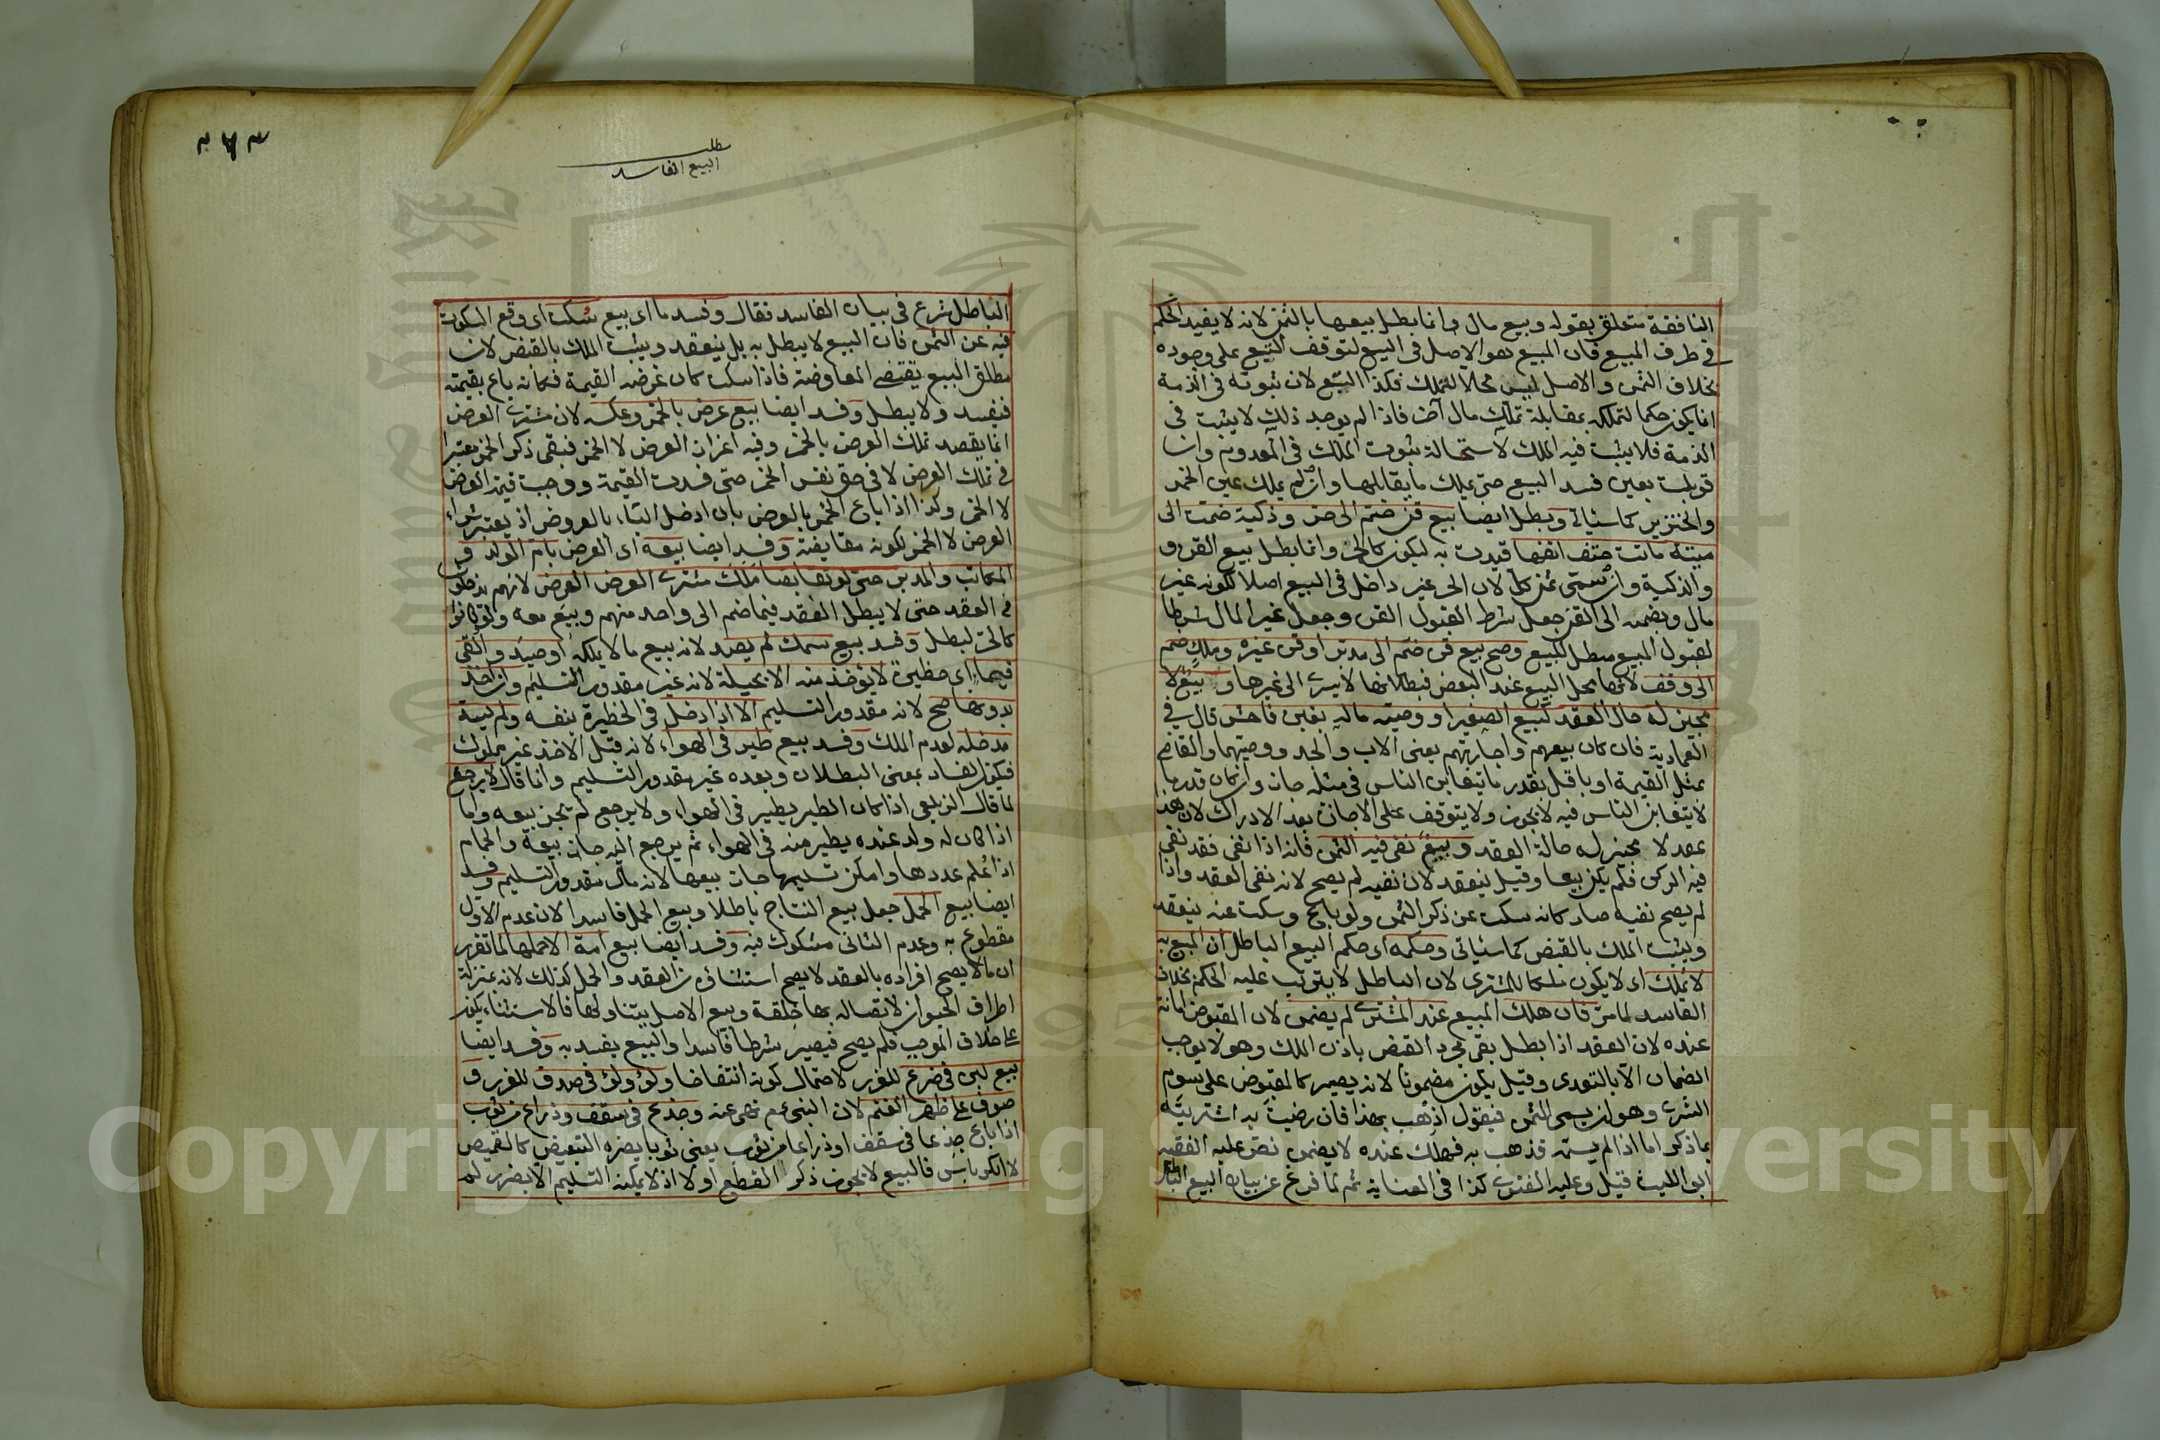 النافقة متعلق بقوله وبيع مال وانما بطل بيعها بالثمن لانه لا يفيد الحكم
في طرف المبيع فان المبيع هو الاصل في البيع لتوقف البيع على وجوده
بخلاف الثمن والاصل ليس محلا للتملك فكذا التبع لان ثبوته في الذمة
انما يكون حكما لتملكه بمقابلة تملك مال آخر فاذا لم يوجد ذلك لا يثبت في
الذمة فلا يثبت فيه الملك لاستحالة ثبوت الملك في المعدوم وان
قوبلت بعين فسد البيع حتى يملك ما يقابلها وان لم يملك عين الخمر
والخنزير كما سيأتي وبطل ايضا بيع قن ضم الى حر وذكية ضمت الى
ميتة ماتت حتف انفها قيدت به ليكون كالحر وانما بطل بيع القن و
والذكية وان سمى ثمن كل لان الحر غير داخل في البيع اصلا لكونه غير
مال وبضمه الى القن جعل شرط القبول القن وجعل غير المال شرطا
لقبول المبيع مبطل للبيع وصح بيع قن ضم الى مدبر او قن غيره وملك ضم
الى وقف لانها محل البيع عند البعض فبطلانها لا يسري الى غيرها و بيع لا
مجيز له حال العقد كبيع الصغير او وصيه ماله بغبن فاحش قال في
العمادية فان كان بيعهم واجارتهم يعني الاب والجد ووصيهما والقاضي
بمثل القيمة او باقل بقدر ما يتغابن الناس في مثله جاز وان كان قدر ما
لا يتغابن الناس فيه لا يجوز ولا يتوقف على الاجازة بعد الادراك لان هذا
عقد لا مجيز له حالة العقد وبيع نفى فيه الثمن فانه اذا نفى فقد نفى
فيه الركن فلم يكن بيعا وقيل ينعقد لان نفيه لم يصح لانه نفى العقد واذا
لم يصح نفيه صار كانه سكت عن ذكر الثمن ولو باع وسكت عنه ينعقد
ويثبت الملك بالقبض كما سيأتي وحكمه اي حكم البيع الباطل ان المبيع به
لا يملك اي لا يكون ملكا للمشتري لان الباطل لا يترتب عليه الحكم بخلاف
الفاسد لما مر فان هلك المبيع عند المشتري لم يضمن لان المقبوض امانة
عنده لان العقد اذا بطل بقي مجرد القبض باذن المالك وهو لا يوجب
الضمان الا بالتعدي وقيل يكون مضمونا لانه يصير كالمقبوض على سوم
الشرى وهو ان يسمى الثمن فيقول اذهب بهذا فان رضيت به اشتريته
بما ذكر اما اذا لم يسمه فذهب به فهلك عنده لا يضمن نص عليه الفقيه
ابو الليث قيل وعليه الفتوى كذا في العناية ثم لما فرغ عن بيان البيع الباطل
٢٨٣
مطلب
البيع الفاسد
الباطل شرع في بيان الفاسد فقال وفسد ما اي بيع سكت اي وقع السكوت
فيه عن الثمن فان البيع لا يبطل به بل ينعقد ويثبت الملك بالقبض لان
مطلق البيع يقتضي المعاوضة فاذا سكت كان غرضه القيمة فكأنه باع بقيمته
فيفسد ولا يبطل وفسد ايضا بيع عرض بالخمر وعكسه لان مشتري العرض
انما يقصد تملك العرض بالخمر وفيه اعزاز العرض لا الخمر فبقي ذكر الخمر معتبرا
في تملك العرض لا في حق نفس الخمر حتى فسدت القيمة ووجبت قيمة العرض
لا الخمر وكذا اذا باع الخمر بالعرض بان ادخل الباء بالعروض اذ يعتبر شراء
العرض لا الخمر لكونه مقايضة وفسد ايضا بيعه اي العرض بام الولد و
المكاتب والمدبر حتى لو تقابضا ملك مشتري العرض العرض لانهم يدخلون
في العقد حتى لا يبطل العقد فيما ضم الى واحد منهم وبيع معه ولو كانوا
كالحر لبطل وفسد بيع سمك لم يصد لانه بيع ما لا يملكه او صيد والقي
فيها اي حظيرة لا يؤخذ منه الا بحيلة لانه غير مقدور التسليم وان اخذ
بدونها صح لانه مقدور التسليم الا اذا دخل في الحظيرة بنفسه ولم يسد
مدخله لعدم الملك وفسد بيع طير في الهواء لانه قبل الاخذ غير مملوك
فيكون الفساد بمعنى البطلان وبعده غير مقدور التسليم وانما قال لا يرجع
لما قال الزيلعي اذا كان الطير يطير في الهواء ولا يرجع لم يجز بيعه واما
اذا كان له ولد عنده يطير منه في الهواء ثم يرجع اليه جاز بيعه والحمام
اذا علم عددها وامكن تسليمها جاز بيعها لانه مال مقدور التسليم وفسد
ايضا بيع الحمل جعل بيع النتاج باطلا وبيع الحمل فاسدا لان عدم الاول
مقطوع به وعدم الثاني مشكوك فيه وفسد ايضا بيع امة الا حملها لما تقرر
ان ما لا يصح افراده بالعقد لا يصح استثناؤه من العقد والحمل كذلك لانه بمنزلة
اطراف الحيوان لاتصاله بها خلقة وبيع الاصل يتناولها فالاستثناء يكون
على خلاف الموجب فلم يصح فيصير شرطا فاسدا والبيع يفسد به وفسد ايضا
بيع لبن في ضرع للغرر لاحتمال كونه انتفاخا ولؤلؤ في صدف للغرر و
صوف على ظهر الغنم لان النبي عم نهى عنه وجذع في سقف وذراع من ثوب
اذا باع جذعا في سقف او ذراعا من ثوب يعني ثوبا يضره التبعيض كالقميص
لا الكرباس فالبيع لا يجوز ذكر القطع اولا اذ لا يمكنه التسليم الا بضرر له